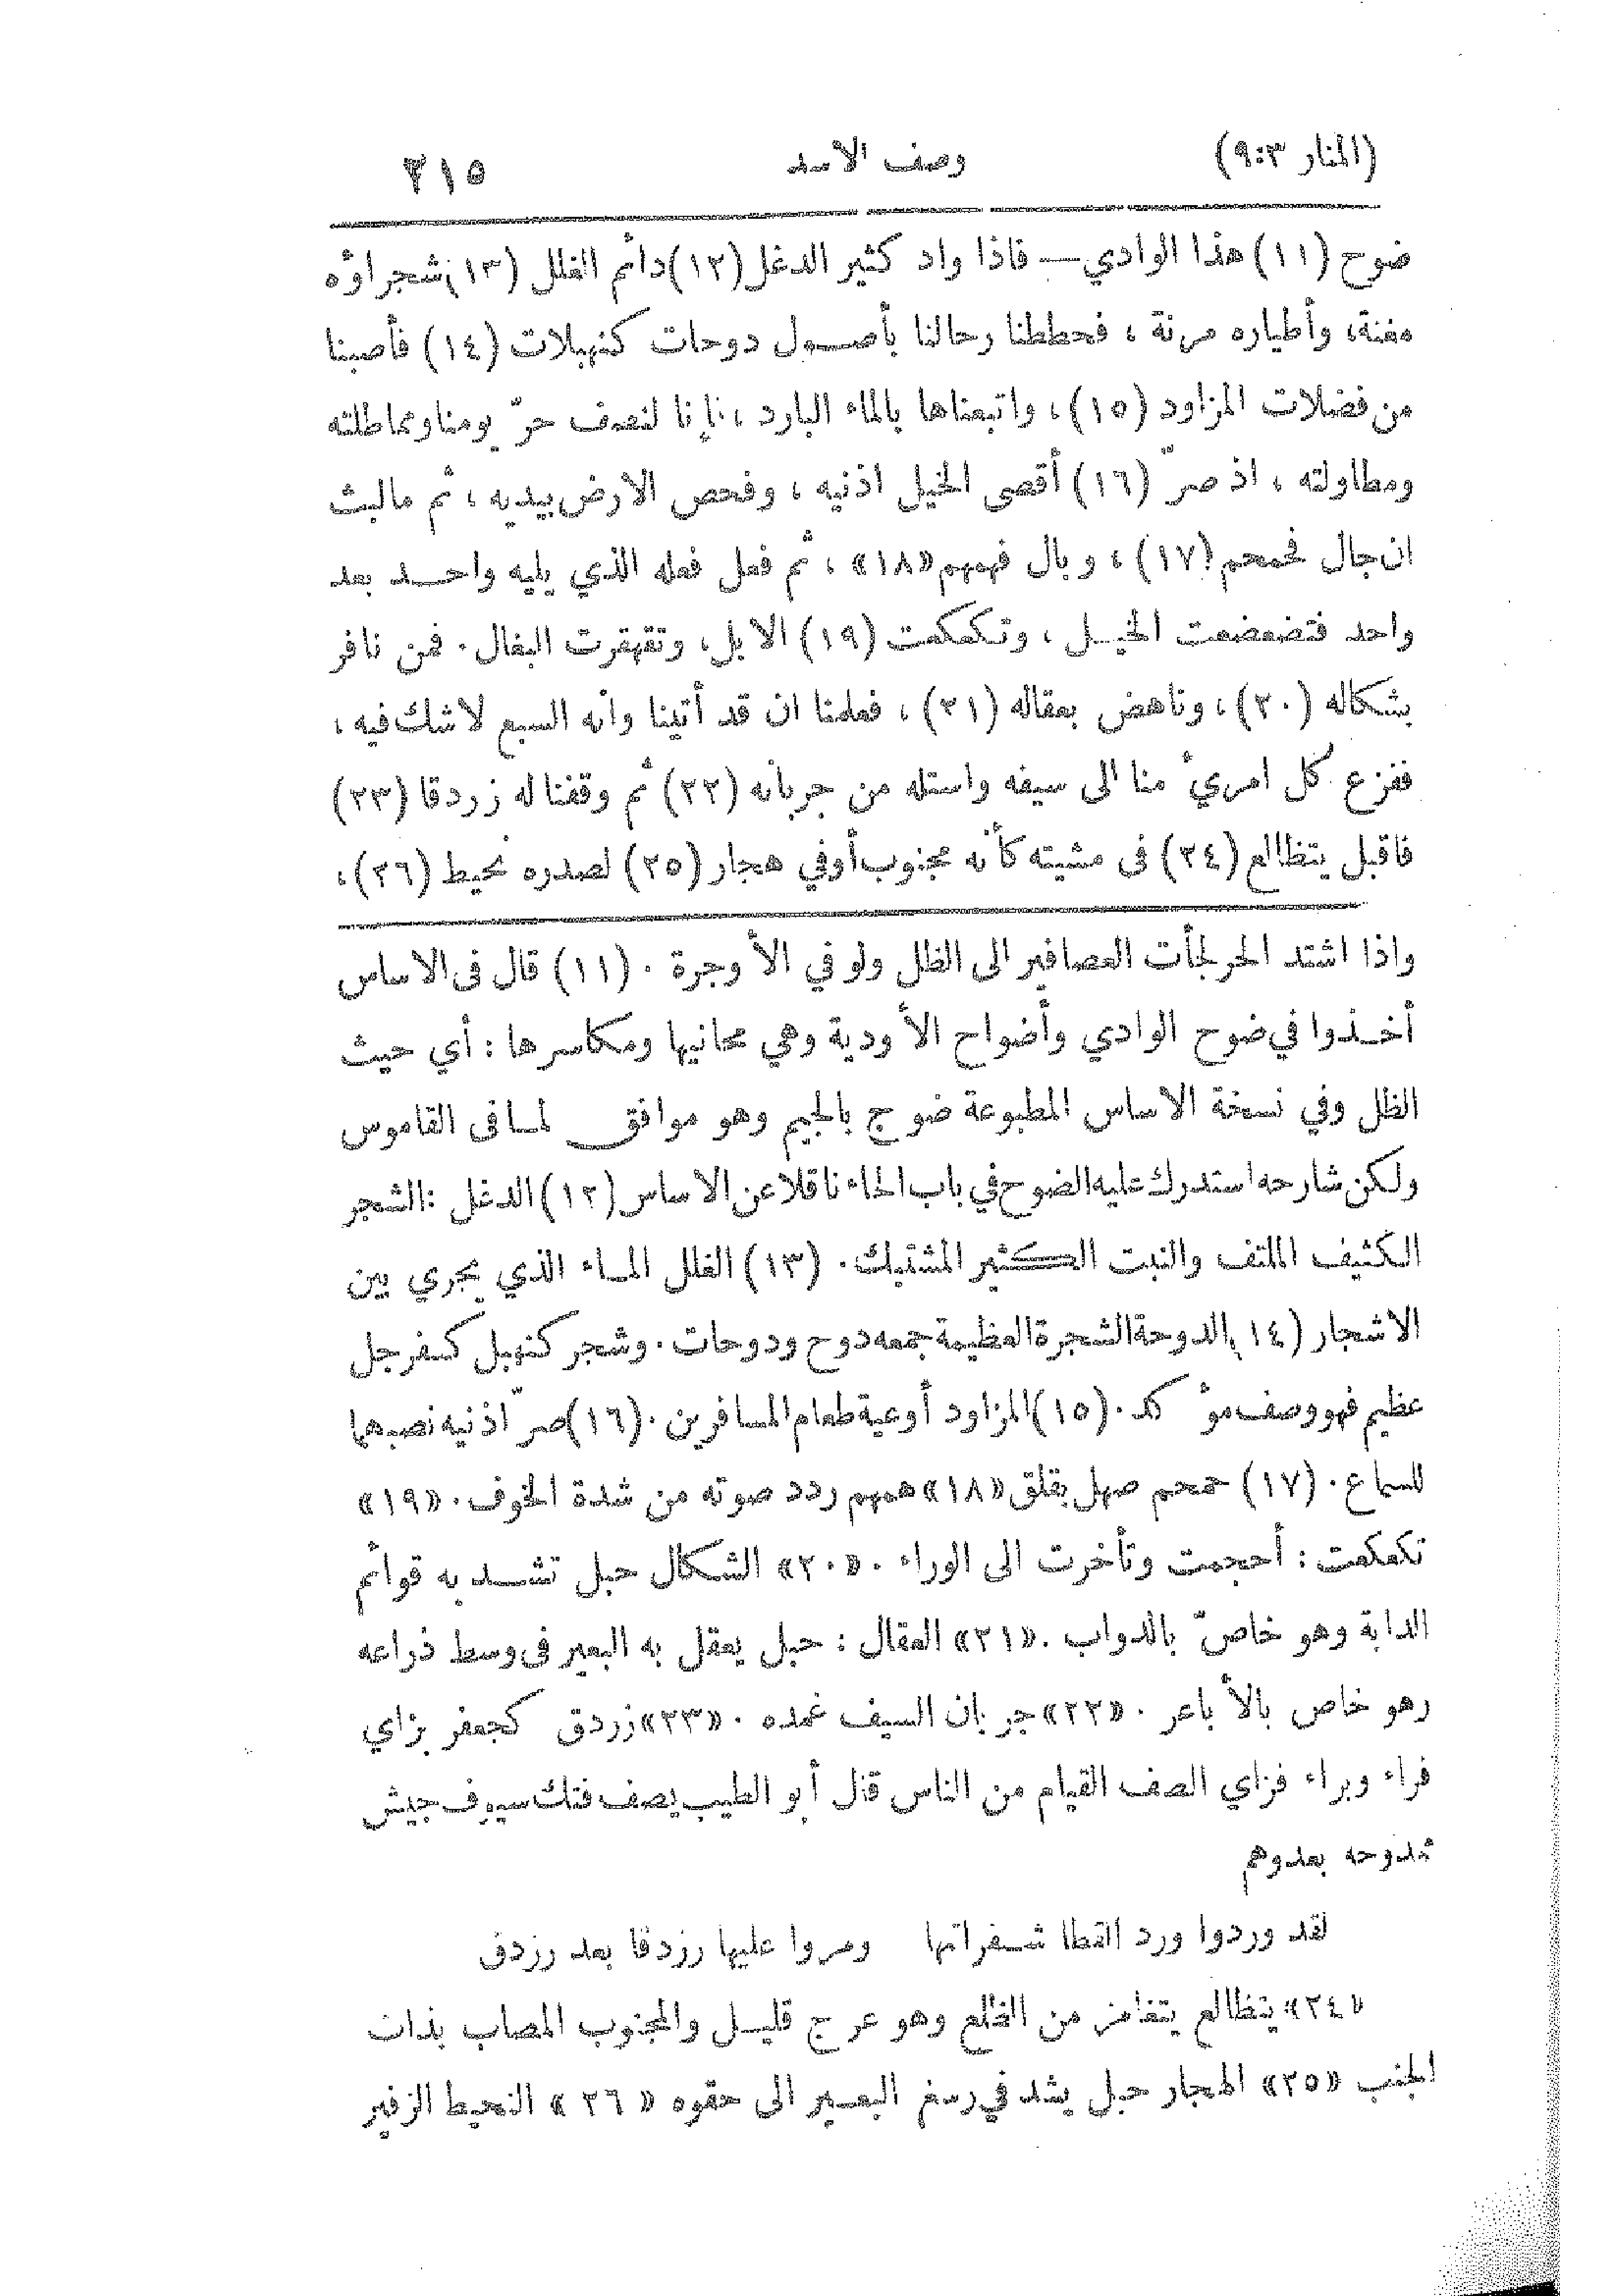 (المنار ٩:٣) وصف الاسد ٢١٥
ضوح (١١) هذا الوادي — فاذا واد كثير الدغل (١٢) دائم الغلل (١٣) شجراؤه
مغنة، وأطياره مرنة ، فحططنا رحالنا بأصـول دوحات كنهبلات (١٤) فأصبنا
من فضلات المزاود (١٥)، واتبعناها بالماء البارد ، فإنا لنصف حرّ يومنا ومماطلته
ومطاولته ، اذ صرّ (١٦) أقصى الخيل اذنيه ، وفحص الارض بيديه ، ثم مالبث
ان جال فحمحم (١٧) ، وبال فهمهم «١٨» ، ثم فعل فعله الذي يليه واحـد بعد
واحد فتضعضعت الخيـل ، وتكعكعت (١٩) الابل، وتقهقرت البغال . فمن نافر
بشكاله (٢٠)، وناهض بعقاله (٢١) ، فعلمنا ان قد أتينا وأنه السبع لاشك فيه ،
ففزع كل امريء منا الى سيفه واستله من جربانه (٢٢) ثم وقفنا له زردقا (٢٣)
فاقبل يتظالع (٢٤) فى مشيته كأنه مجنوب أوفي هجار (٢٥) لصدره نحيط (٢٦)،
واذا اشتد الحر لجأت العصافير الى الظل ولو في الأوجرة . (١١) قال فى الاساس
أخـذوا في ضوح الوادي وأضواح الأودية وهي محانيها ومكاسرها : أي حيث
الظل وفي نسخة الاساس المطبوعة ضوج بالجيم وهو موافق لمـا فى القاموس
ولكن شارحه استدرك عليه الضوح في باب الحاء ناقلا عن الاساس (١٢) الدغل : الشجر
الكثيف الملتف والنبت الكثير المشتبك . (١٣) الغلل المـاء الذي يجري بين
الاشجار (١٤) الدوحة الشجرة العظيمة جمعه دوح ودوحات . وشجر كنهبل كسفرجل
عظيم فهو وصف مؤكد . (١٥) المزاود أوعية طعام المسافرين . (١٦) صرّ اذنيه نصبهما
للسماع . (١٧) حمحم صهل بقلق «١٨» همهم ردد صوته من شدة الخوف . «١٩»
تكعكعت : أحجمت وتأخرت الى الوراء . «٢٠» الشكال حبل تشـد به قوائم
الدابة وهو خاصّ بالدواب . «٢١» العقال : حبل يعقل به البعير فى وسط ذراعه
وهو خاص بالأباعر . «٢٢» جربان السيف غمده . «٢٣» زردق كجعفر بزاي
فراء وبراء فزاي الصف القيام من الناس قال أبو الطيب يصف فتك سيوف جيش
ممدوحه بعدوهم
لقد وردوا ورد القطا شـفراتها ومروا عليها رزدقا بعد رزدق
«٢٤» يتظالع يتغامز من الظلع وهو عرج قليـل والمجنوب المصاب بذات
الجنب «٢٥» الهجار حبل يشد في رسغ البعـير الى حقوه «٢٦» النحيط الزفير